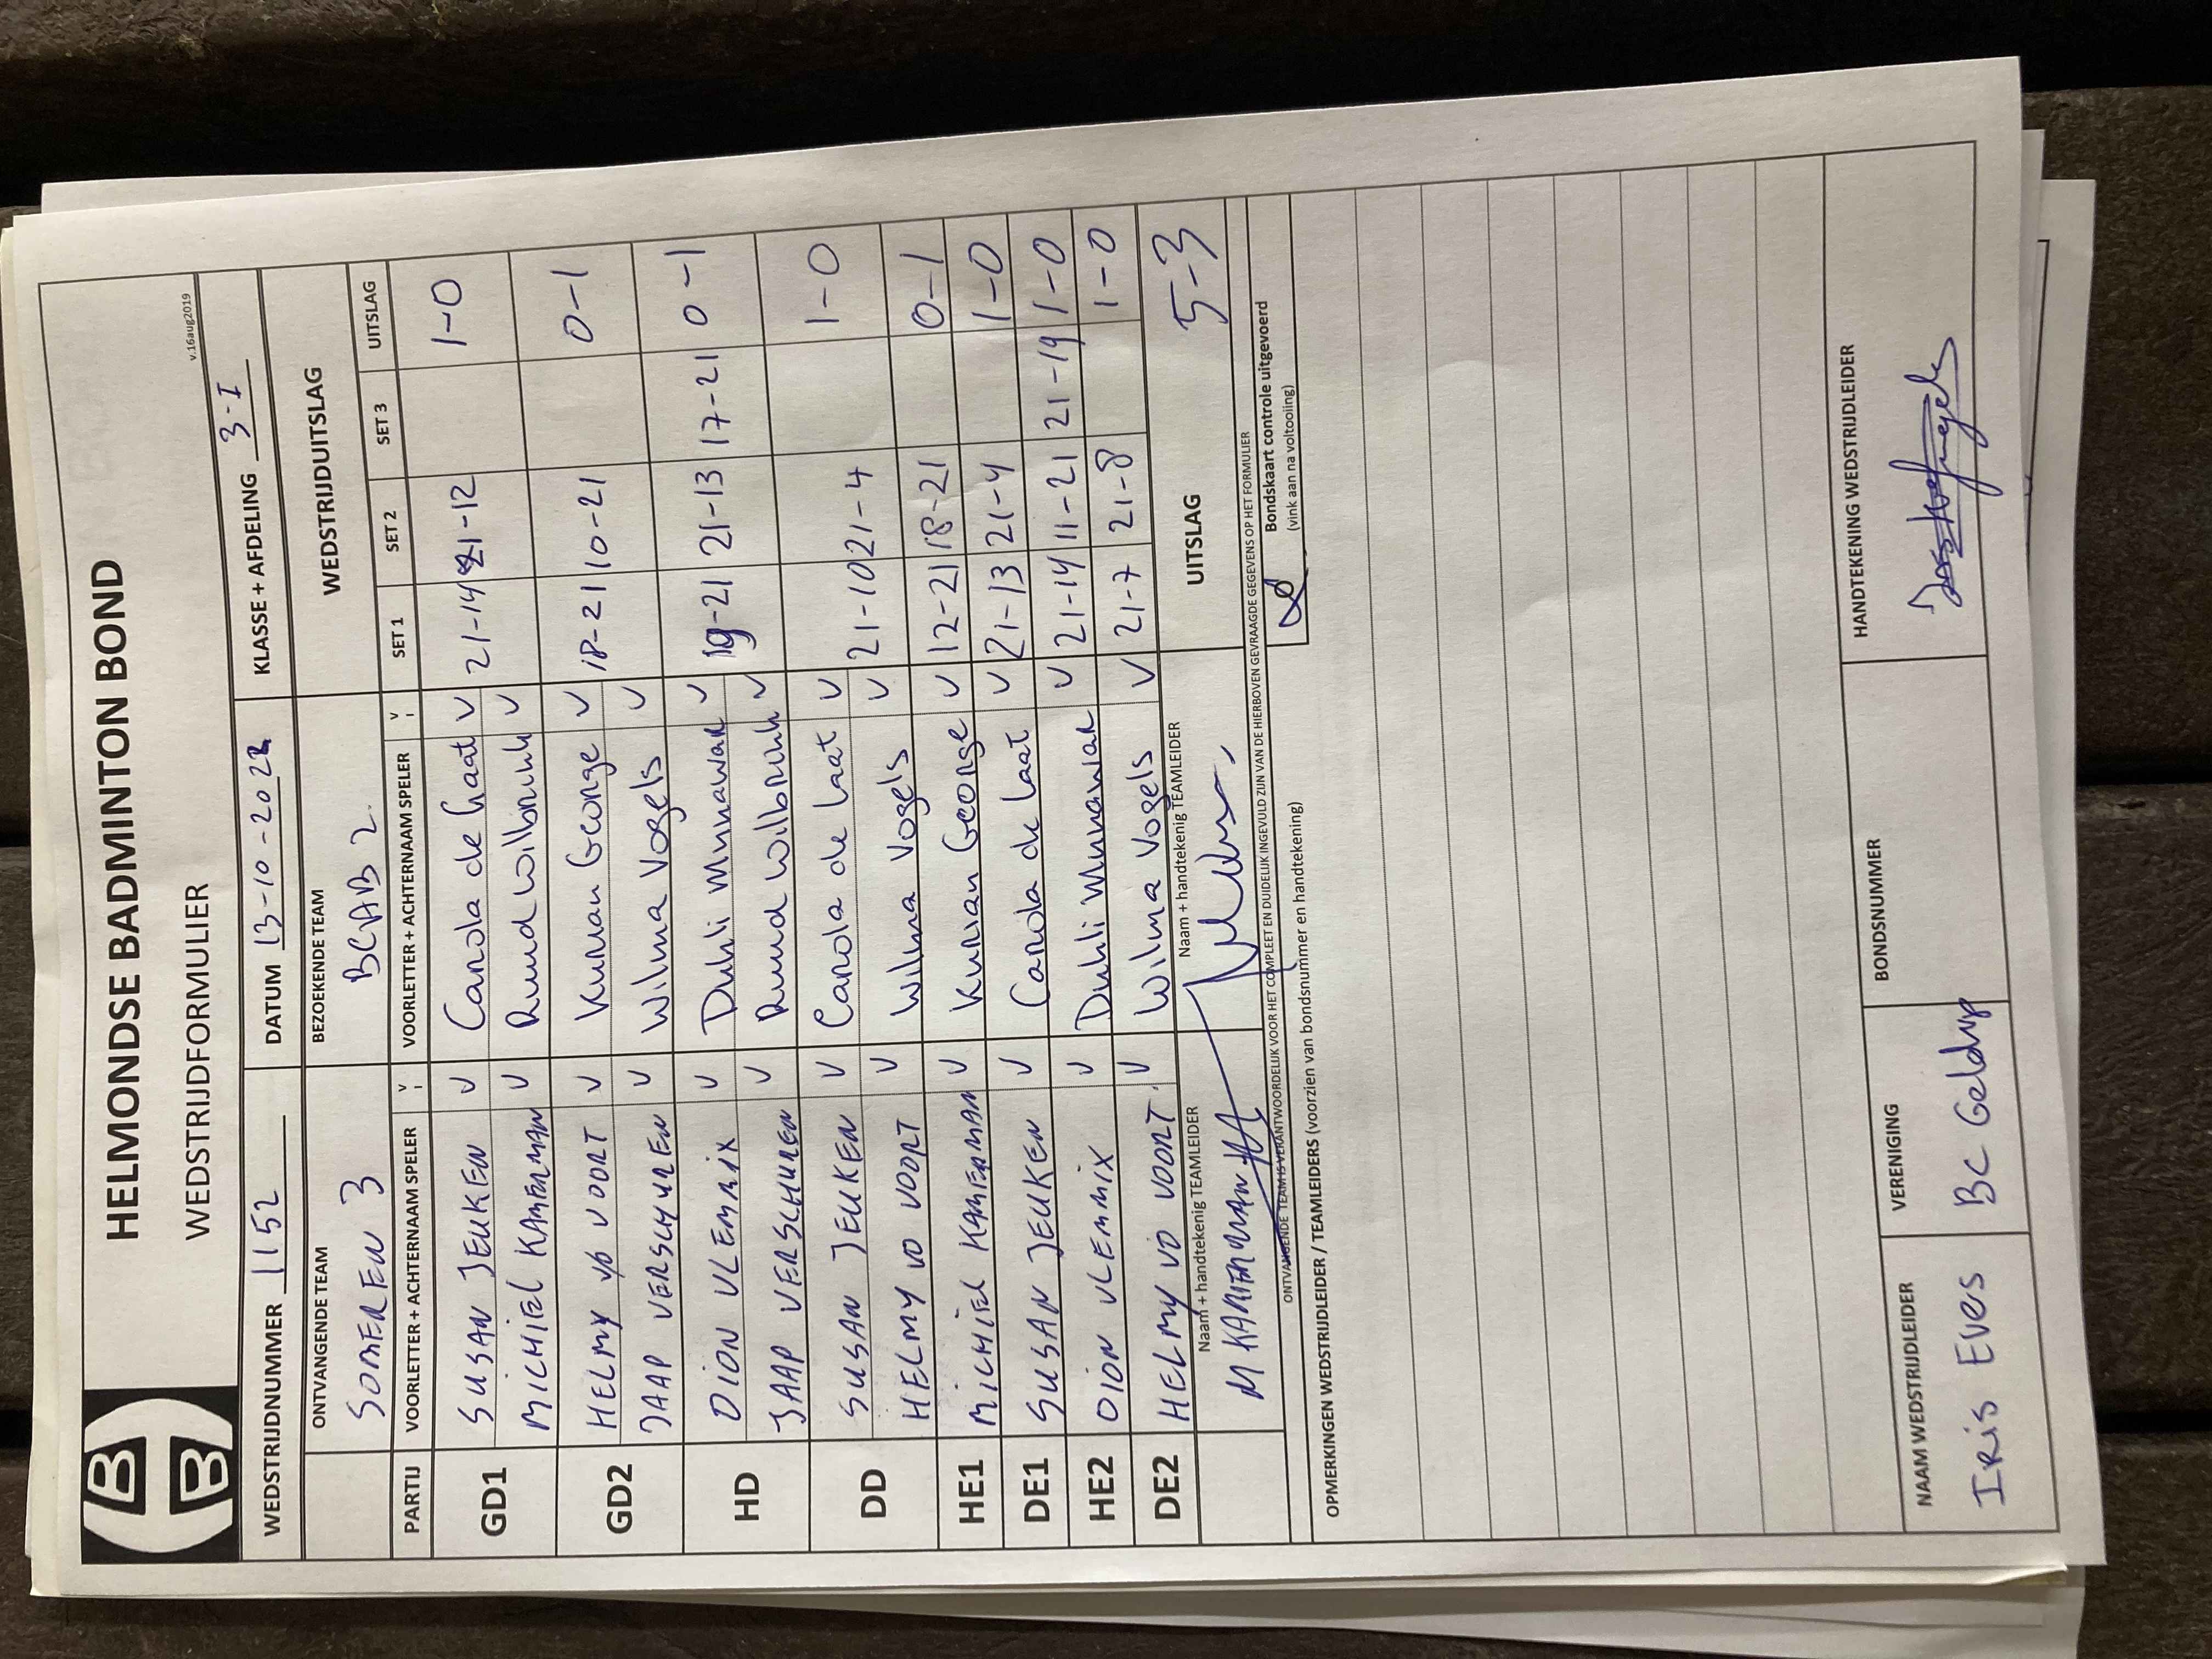 HELMONDSE BADMINTON BOND
WEDSTRIJDFORMULIER
v.16aug2019
WEDSTRIJDNUMMER 1152 DATUM 13-10-2022 KLASSE + AFDELING 3-I
ONTVANGENDE TEAM BEZOEKENDE TEAM WEDSTRIJDUITSLAG
SOMEREN 3 BCAB 2
PARTIJ VOORLETTER + ACHTERNAAM SPELER V VOORLETTER + ACHTERNAAM SPELER V SET 1 SET 2 SET 3 UITSLAG
GD1 SUSAN JEUKEN V Carola de Laat V 21-14 21-12 1-0
MICHIEL KAMERMAN V Ruud Wilbrink V
GD2 HELMY VD VOORT V Kurian George V 18-21 10-21 0-1
JAAP VERSCHUREN V Wilma Vogels V
HD DION VLEMMIX V Duhli Munawar V 19-21 21-13 17-21 0-1
JAAP VERSCHUREN V Ruud Wilbrink V
DD SUSAN JEUKEN V Carola de Laat V 21-10 21-4 1-0
HELMY VD VOORT V Wilma Vogels V
HE1 MICHIEL KAMERMAN V Kurian George V 12-21 18-21 0-1
DE1 SUSAN JEUKEN V Carola de Laat V 21-13 21-4 1-0
HE2 DION VLEMMIX V Duhli Munawar V 21-14 11-21 21-19 1-0
DE2 HELMY VD VOORT V Wilma Vogels V 21-7 21-8 1-0
Naam + handtekenig TEAMLEIDER Naam + handtekenig TEAMLEIDER UITSLAG 5-3
M KAMERMAN
ONTVANGENDE TEAM IS VERANTWOORDELIJK VOOR HET COMPLEET EN DUIDELIJK INGEVULD ZIJN VAN DE HIERBOVEN GEVRAAGDE GEGEVENS OP HET FORMULIER
Bondskaart controle uitgevoerd
(vink aan na voltooiing)
OPMERKINGEN WEDSTRIJDLEIDER / TEAMLEIDERS (voorzien van bondsnummer en handtekening)
NAAM WEDSTRIJDLEIDER VERENIGING BONDSNUMMER HANDTEKENING WEDSTRIJDLEIDER
Iris Eves BC Geldrop